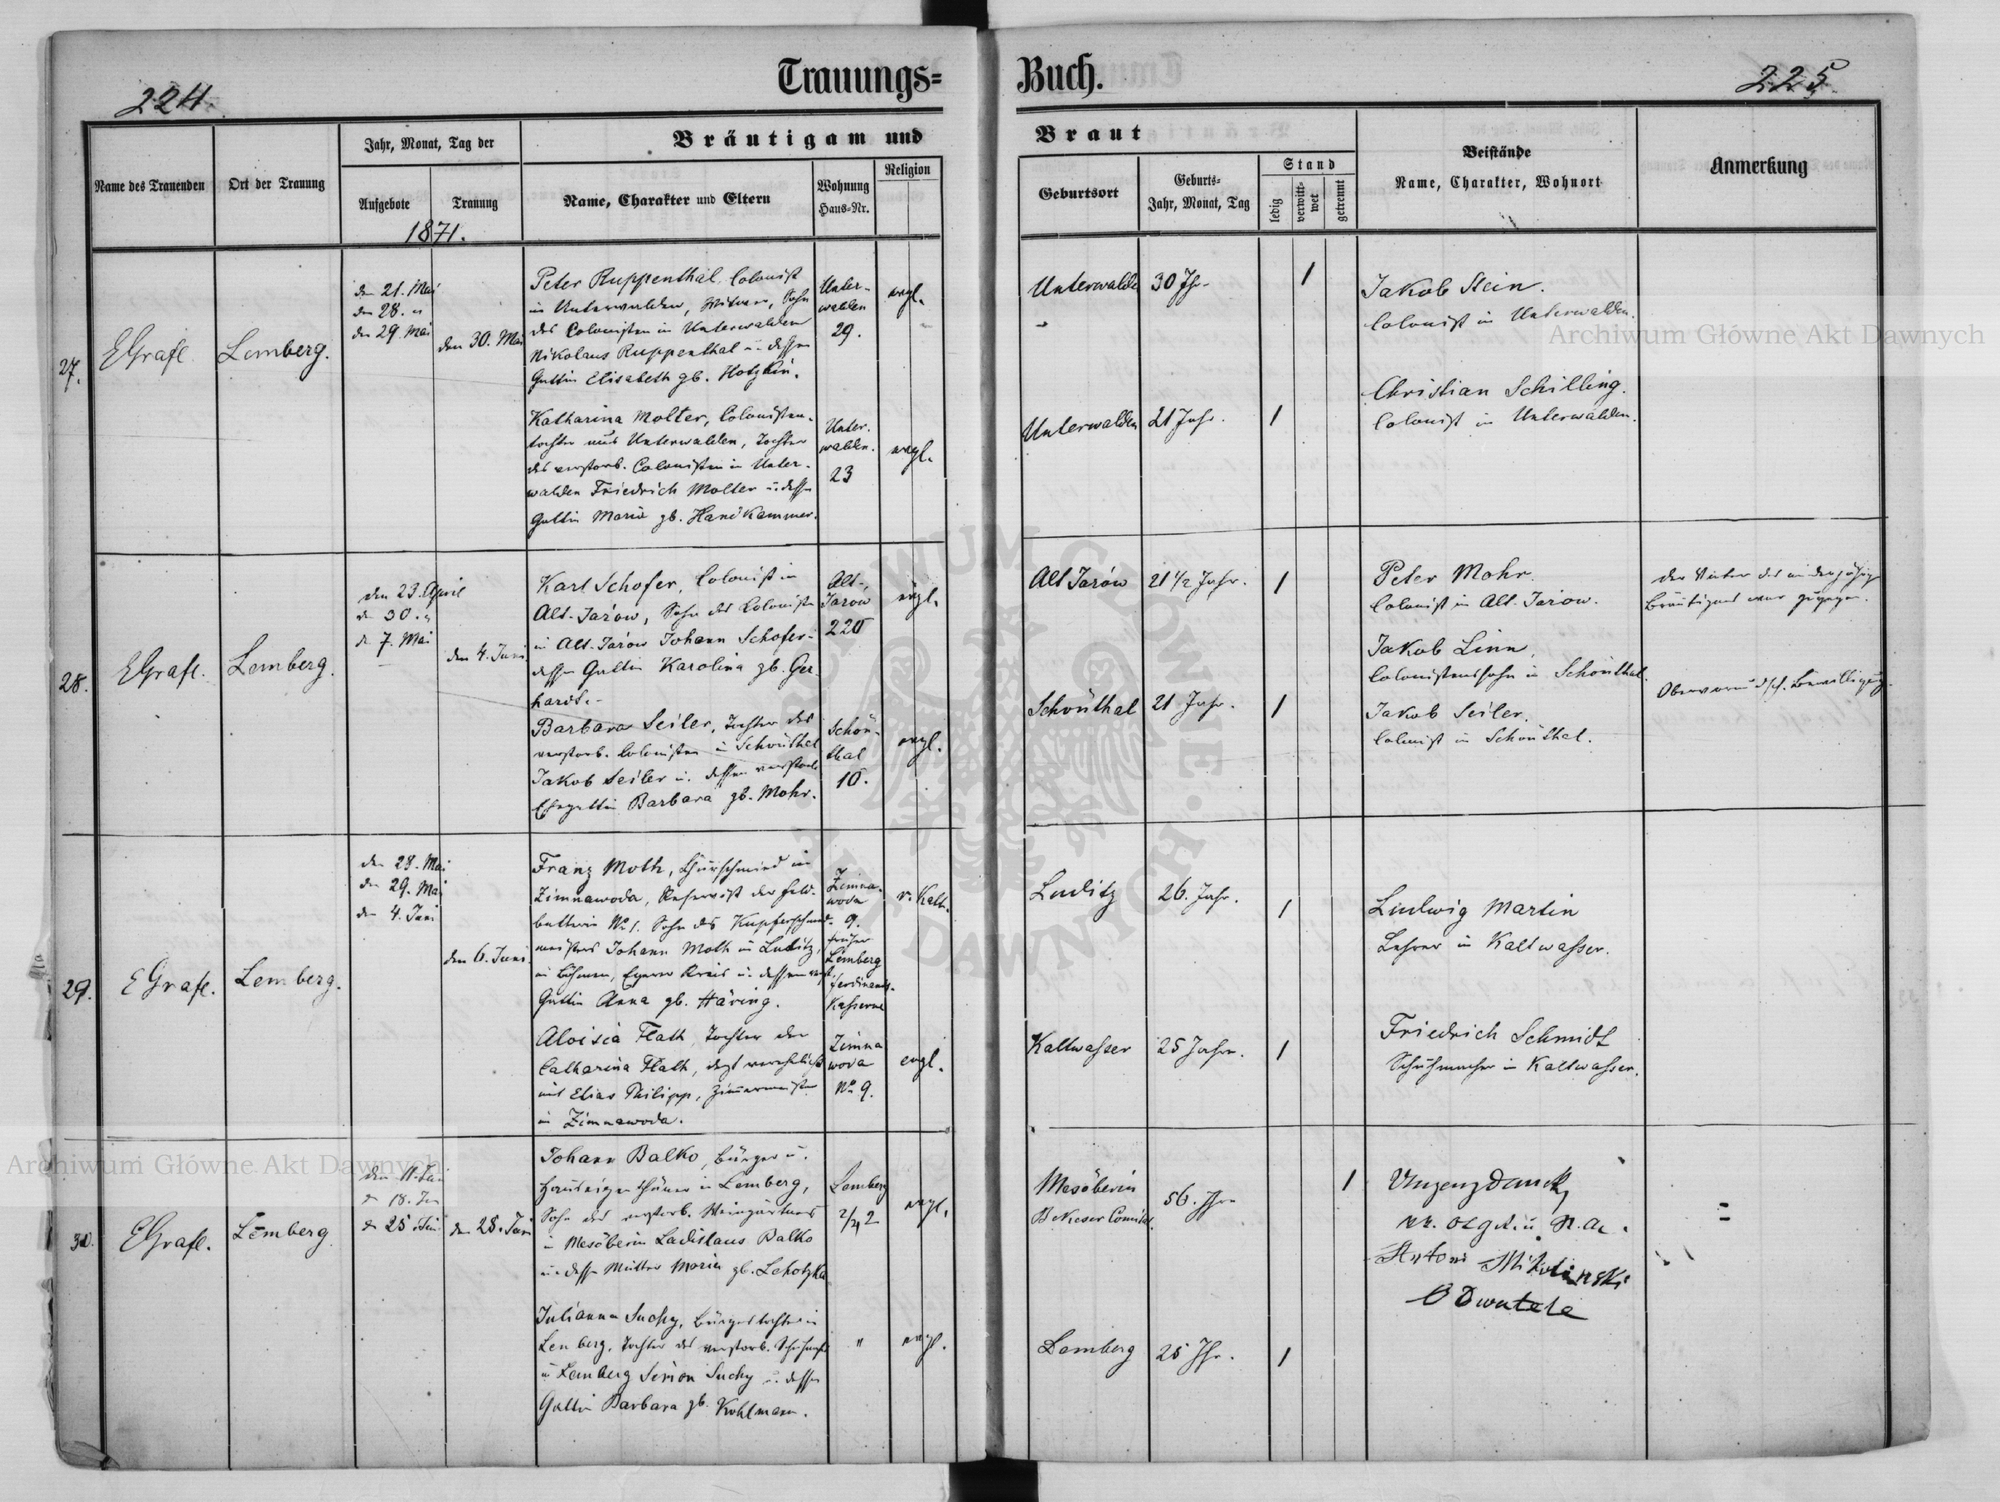 224.
Trauungs=
Buch.
225.
Name des Trauenden
Ort der Trauung
Jahr, Monat, Tag der
Aufgebote
Trauung
1871.
Bräutigam und
Name, Charakter und Eltern
Wohnung
Haus-Nr.
Religion
Braut
Geburtsort
Geburts-
Jahr, Monat, Tag
Stand
ledig
verwitt-
wet
getrennt
Beistände
Name, Charakter, Wohnort
Anmerkung
27.
EGrafl.
Lemberg.
den 21. Mai
den 28. "
den 29. Mai
den 30. Mai
Peter Ruppenthal, Colonist
in Unterwalden, Witwer, Sohn
des Colonisten in Unterwalden
Nikolaus Ruppenthal u. dessen
Gattin Elisabeth gb.
Unter-
walden
29.
evgl.
Unterwalden
30 Jhr.
Jakob Stein.
Colonist in Unterwalden.
Katharina Molter, Colonisten-
tochter aus Unterwalden, Tochter
des verstorb. Colonisten in Unter-
walden Friedrich Molter u. dessen
Gattin Maria gb. Handkammer.
Unter-
walden.
23
evgl.
Unterwalden
21 Jahr.
Christian Schilling.
Colonist in Unterwalden.
28.
EGrafl.
Lemberg.
den 23. April
d. 30. "
d. 7. Mai
den 4. Juni
Karl Schofer, Colonist in
Alt-Jarów, Sohn des Colonisten
in Alt-Jarów Johann Schofer u.
dessen Gattin Karolina gb. Ger-
hardt.
Alt-
Jarów
220
evgl.
Alt Jarów
21 1/2 Jahr.
Peter Mohr.
Colonist in Alt-Jarow.
Jakob Linn.
Colonistensohn in Schönthal.
der Vater des minderjährig
Bräutigams war zugegen.
Barbara Seiler, Tochter des
verstorb. Colonisten in Schönthal
Jakob Seiler u. dessen verstorb.
Ehegattin Barbara gb. Mohr.
Schön-
thal
10.
evgl.
Schönthal
21 Jahr.
Jakob Seiler.
Colonist in Schönthal.
Bewilligung
29.
EGrafl.
Lemberg.
den 28. Mai
den 29. Mai
den 4. Juni
den 6. Juni.
Franz Moth, in
Zimnawoda, Reservist der Feld-
batterie No 1. Sohn des Kupferschmied-
meisters Johann Moth in Luditz,
in Böhmen, Egerer Kreis u. dessen verst.
Gattin Anna gb. Häring.
Zimna-
woda
9.
früher
Lemberg
Ferdinands-
Kasserne
r. Kath.
Luditz
26. Jahr.
Ludwig Martin
Lehrer in Kaltwasser.
Aloisia Flath, Tochter der
Catharina Flath, jetzt verehelicht
mit Elias Philipp, Zimmermeister
in Zimnawoda.
Zimna
woda
No 9.
evgl.
Kaltwasser
25 Jahre.
Friedrich Schmidt
Schuhmacher in Kaltwasser.
30.
EGrafl.
Lemberg
den 11. Juni
d. 18. Jun
d. 25 Juni
den 28. Juni
Johann Balko, Bürger u.
Hauseigenthümer in Lemberg,
Sohn des verstorb. Weingärtners
in Mesöberin Ladislaus Balko
u. dessen Mutter Maria gb. Lehotzka
Lemberg
2/4 2
evgl.
Mesöberin
Bekeser Comitat.
56. Jhr.
Antoni Mikolinski
Julianna Suchy, Bürgerstochter in
Lemberg, Tochter des verstorb.
in Lemberg Simon Suchy u. dessen
Gattin Barbara gb. Kohlmann.
"
evgl.
Lemberg
25 Jhr.
Archiwum Główne Akt Dawnych
Archiwum Główne Akt Dawnych
ARCHIWUM GŁÓWNE AKT DAWNYCH